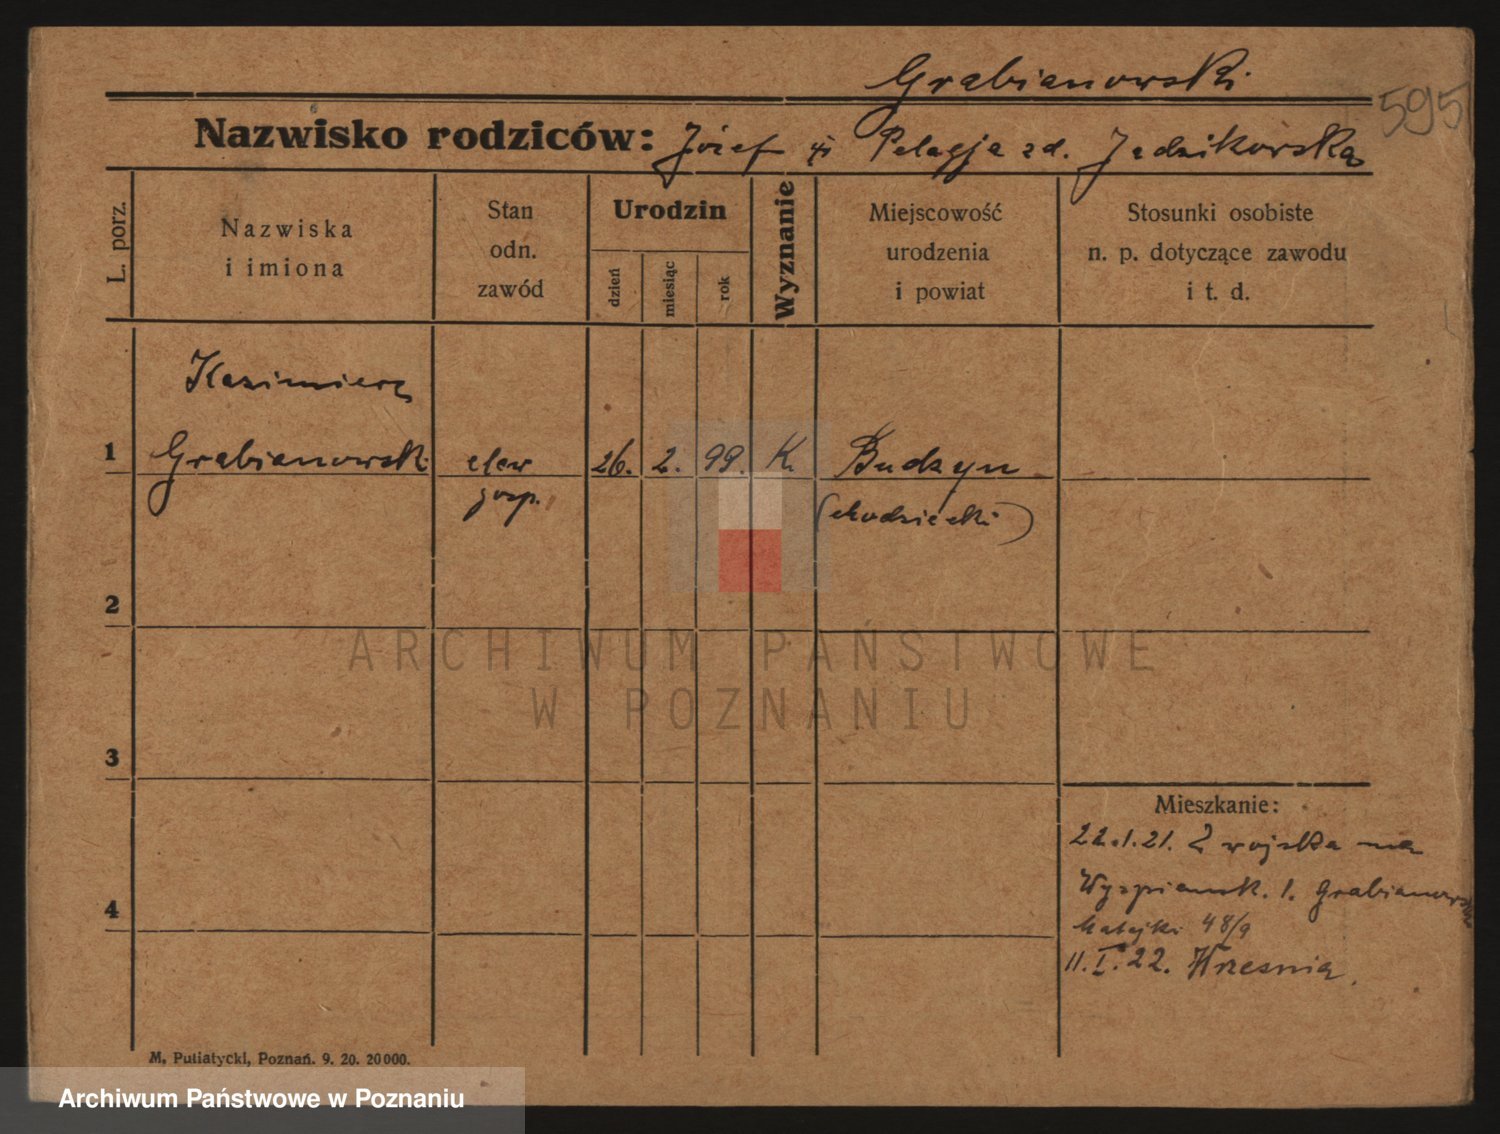 Grabianowski
595
Nazwisko rodziców: Józef i Pelagja zd. Jedzikowska
L. porz.
Nazwiska
i imiona
Stan
odn.
zawód
Urodzin
dzień
miesiąc
rok
Wyznanie
Miejscowość
urodzenia
i powiat
Stosunki osobiste
n. p. dotyczące zawodu
i t. d.
Kazimierz
1 Grabianowski elew 26. 2. 99. K. Budzyn
gosp. (chodzieski)
2
3
Mieszkanie:
22.1.21. Z wojska na
Wyspiańsk. 1. Grabianowski
4
Matejki 48/9
11.I.22. Wrzesnia.
M. Putiatycki, Poznań. 9. 20. 20000.
ARCHIWUM PAŃSTWOWE
W POZNANIU
Archiwum Państwowe w Poznaniu